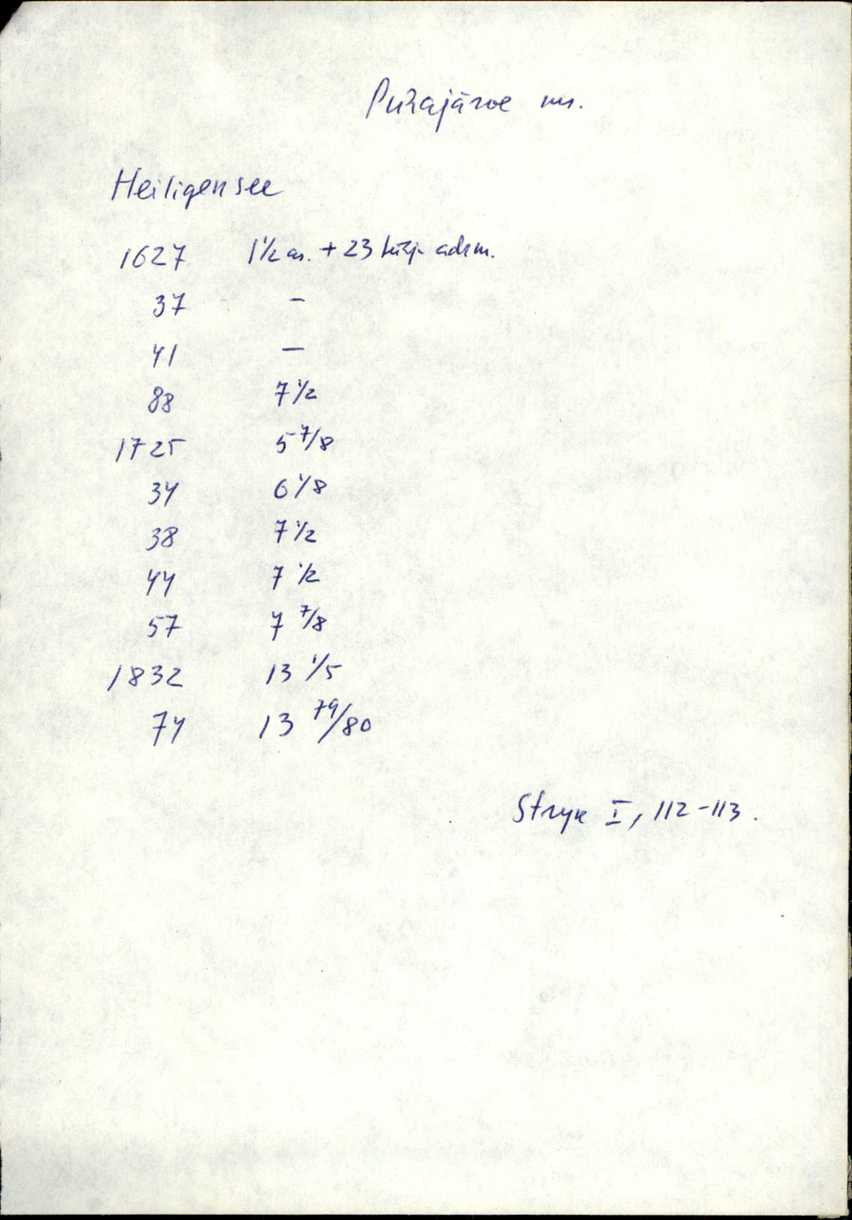 Pühajärve ms.
Heiligensee
1627 1 1/2 as. + 23 adrm.
37 –
41 –
88 7 1/2
1725 5 7/8
34 6 1/8
38 7 1/2
44 7 1/2
57 7 7/8
1832 13 1/5
74 13 79/80
Stryk I, 112-113.